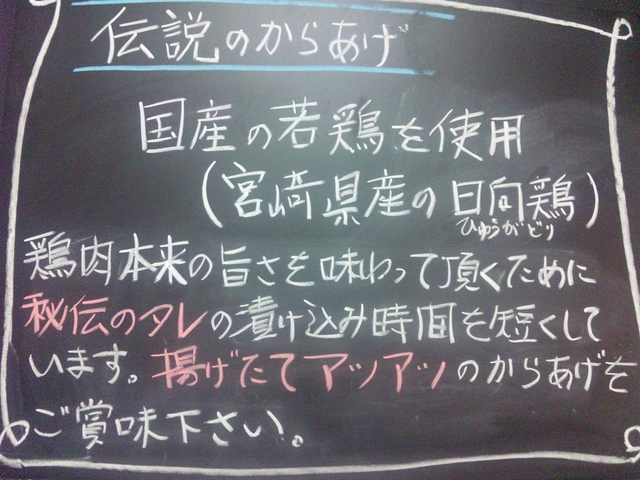 伝説のからあげ
国産の若鶏を使用
(宮崎県産の日向鶏)
ひゅうがどり
鶏肉本来の旨さを味わって頂くために
秘伝のタレの漬け込み時間を短くして
います。揚げたてアツアツのからあげを
ご賞味下さい。